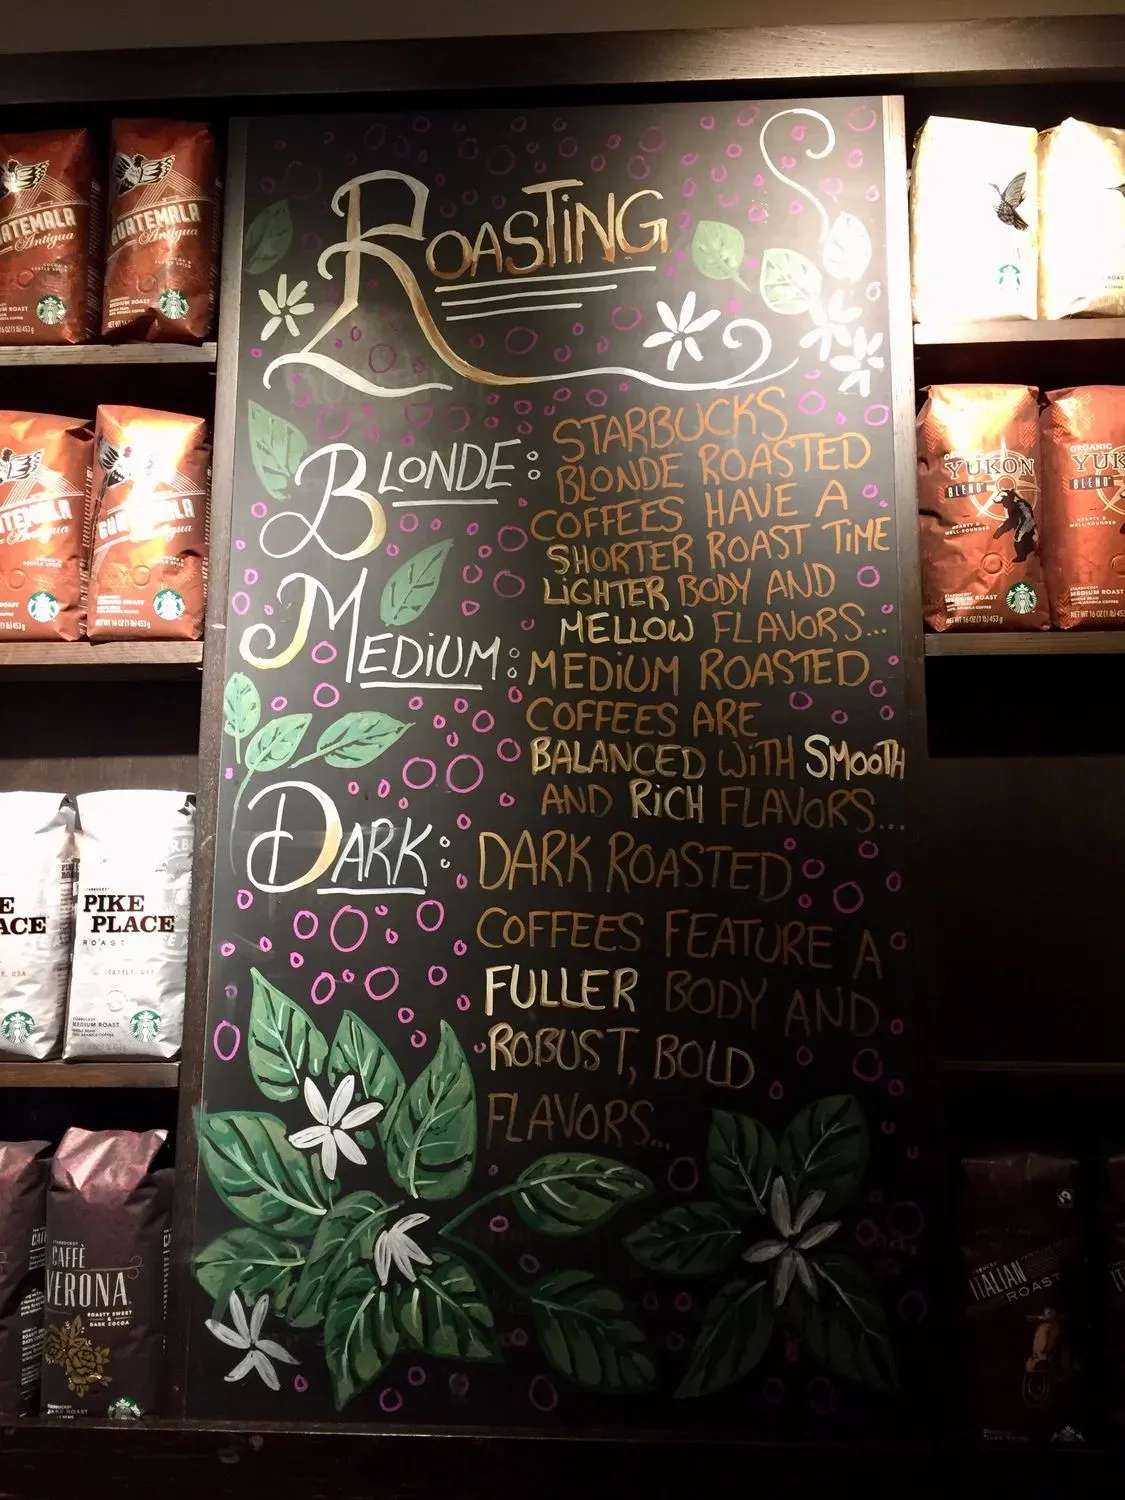 ROASTING
BLONDE:
STARBUCKS
BLONDE ROASTED
COFFEES HAVE A
SHORTER ROAST TIME
LIGHTER BODY AND
MELLOW FLAVORS...
MEDIUM:
MEDIUM ROASTED
COFFEES ARE
BALANCED WITH SMOOTH
AND RICH FLAVORS...
DARK:
DARK ROASTED
COFFEES FEATURE A
FULLER BODY AND
ROBUST, BOLD
FLAVORS...
GUATEMALA
Antigua
MEDIUM ROAST
GUATEMALA
Antigua
COCOA &
SUBTLE SPICE
MEDIUM ROAST
PIKE
PLACE
ROAST
MEDIUM ROAST
CAFFÈ
VERONA
ROASTY SWEET
&
DARK COCOA
DARK ROAST
ORGANIC
YUKON
BLEND
HEARTY &
WELL-ROUNDED
MEDIUM ROAST
NET WT 16 OZ (1 lb) 453 g
ORGANIC
YUK
BLEND
MEDIUM ROAST
NET WT 16 OZ (1 lb) 453 g
ITALIAN
ROAST